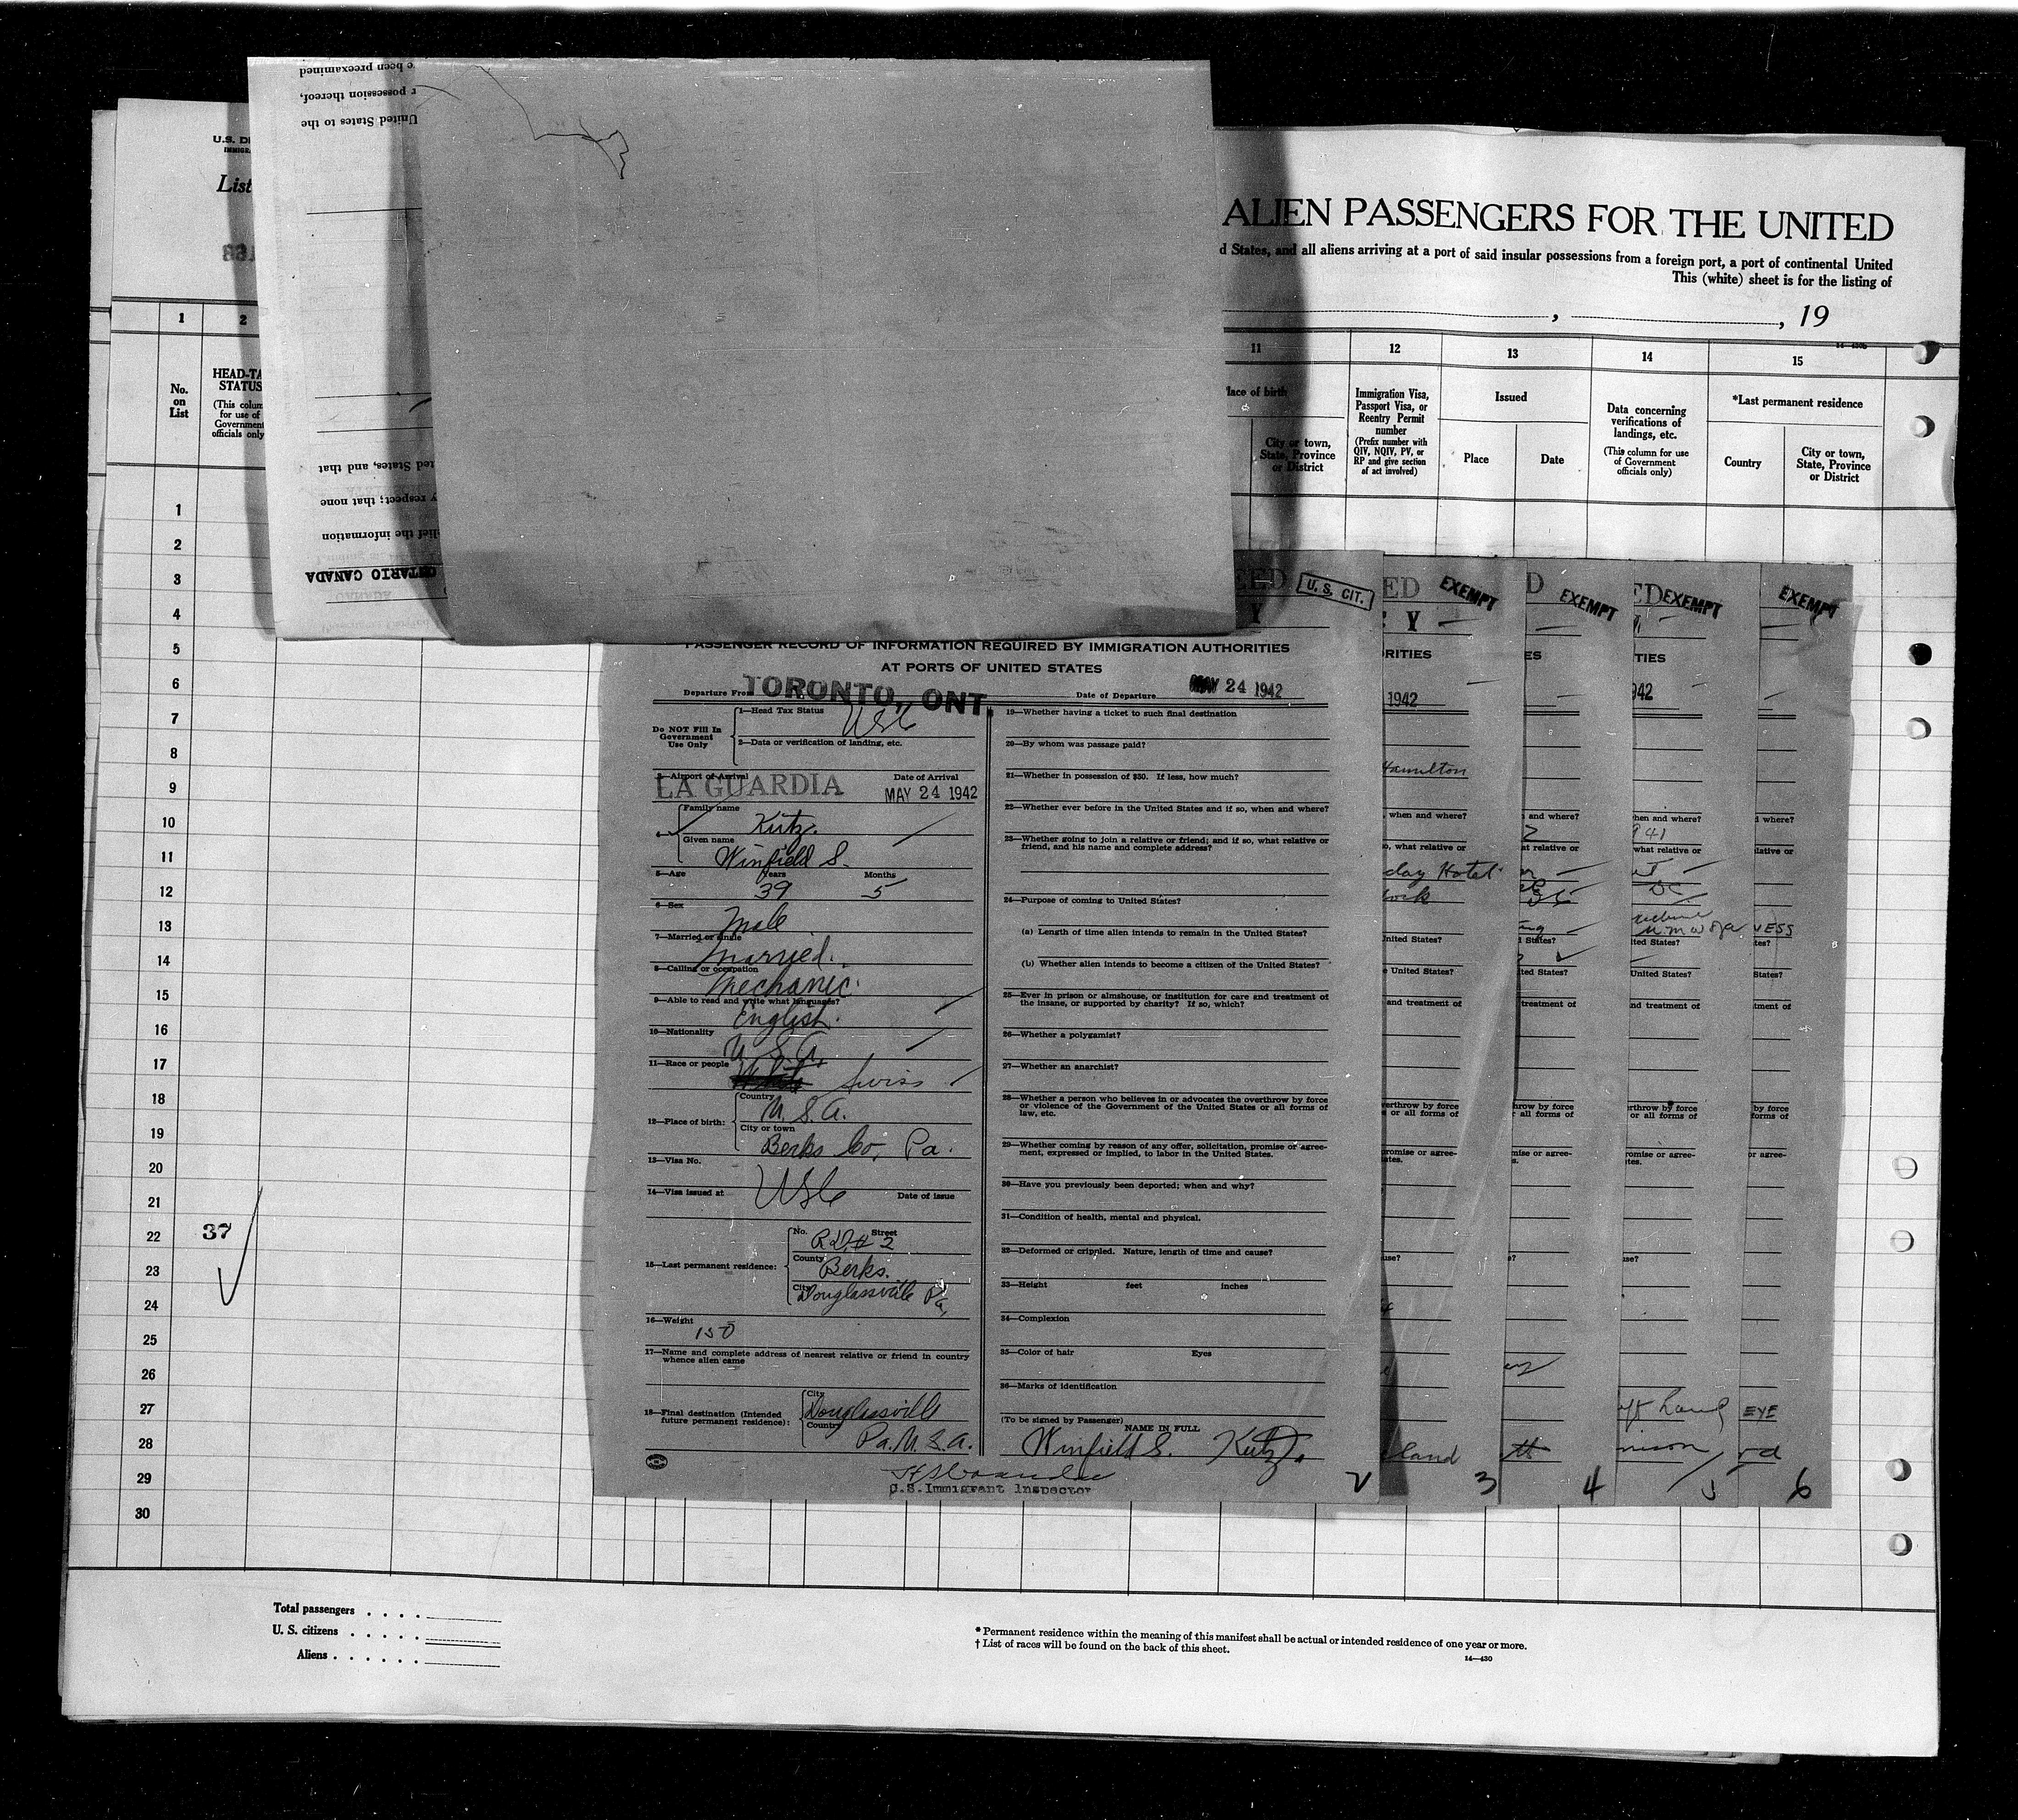 U.S. DE
IMMIGRA
List
ALIEN PASSENGERS FOR THE UNITED
d States, and all aliens arriving at a port of said insular possessions from a foreign port, a port of continental United
This (white) sheet is for the listing of
, , 19
1 2 11 12 13 14 15
No. on List
HEAD-TA
STATUS
(This colum
for use of
Government
officials only
lace of birth
City or town,
State, Province
or District
Immigration Visa,
Passport Visa, or
Reentry Permit
number
(Prefix number with
QIV, NQIV, PV, or
RP and give section
of act involved)
Issued
Place Date
Data concerning
verifications of
landings, etc.
(This column for use
of Government
officials only)
*Last permanent residence
Country
City or town,
State, Province
or District
e been preexamined
r possession thereof,
United States to the
ted States, and that
y respect; that none
lief the information
ONTARIO CANADA
1
2
3
4
5
6
7
8
9
10
11
12
13
14
15
16
17
18
19
20
21
22 37
23
24
25
26
27
28
29
30
U. S. CIT.
PASSENGER RECORD OF INFORMATION REQUIRED BY IMMIGRATION AUTHORITIES
AT PORTS OF UNITED STATES
Departure From TORONTO, ONT. Date of Departure MAY 24 1942
Do NOT Fill In
Government
Use Only
1—Head Tax Status USC
2—Data or verification of landing, etc.
3—Airport of Arrival Date of Arrival
LA GUARDIA MAY 24 1942
4— Family name
Kutz.
Given name
Winfield S.
5—Age Years Months
39 5
6—Sex
Male
7—Married or single
Married.
8—Calling or occupation
Mechanic.
9—Able to read and write what languages?
English.
10—Nationality
U. S. A.
11—Race or people
White Swiss
12—Place of birth: Country
U. S. A.
City or town
Berks Co, Pa.
13—Visa No.
USC
14—Visa issued at Date of issue
15—Last permanent residence:
No. Street
R.D.# 2
County
Berks.
City
Douglassville Pa,
16—Weight
150
17—Name and complete address of nearest relative or friend in country
whence alien came
18—Final destination (Intended
future permanent residence):
City
Douglassville
Country
Pa. U. S. A.
19—Whether having a ticket to such final destination
20—By whom was passage paid?
21—Whether in possession of $50. If less, how much?
22—Whether ever before in the United States and if so, when and where?
23—Whether going to join a relative or friend; and if so, what relative or
friend, and his name and complete address?
24—Purpose of coming to United States?
(a) Length of time alien intends to remain in the United States?
(b) Whether alien intends to become a citizen of the United States?
25—Ever in prison or almshouse, or institution for care and treatment of
the insane, or supported by charity? If so, which?
26—Whether a polygamist?
27—Whether an anarchist?
28—Whether a person who believes in or advocates the overthrow by force
or violence of the Government of the United States or all forms of
law, etc.
29—Whether coming by reason of any offer, solicitation, promise or agree-
ment, expressed or implied, to labor in the United States.
30—Have you previously been deported; when and why?
31—Condition of health, mental and physical.
32—Deformed or crippled. Nature, length of time and cause?
33—Height feet inches
34—Complexion
35—Color of hair Eyes
36—Marks of identification
(To be signed by Passenger)
NAME IN FULL
Winfield S. Kutz.
U.S. Immigrant Inspector
2
EXEMPT
RITIES
1942
Hamilton
when and where?
o, what relative or
day Hotel
United States?
e United States?
and treatment of
verthrow by force
s or all forms of
romise or agree-
ates.
use?
land
3
EXEMPT
ES
and where?
at relative or
d States?
ted States?
treatment of
hrow by force
r all forms of
mise or agree-
s.
4
EXEMPT
TIES
942
hen and where?
941
what relative or
DC
ited States?
United States?
nd treatment of
rthrow by force
or all forms of
romise or agree-
tes.
use?
nison
5
EXEMPT
d where?
lative or
NESS
tes?
States?
tment of
by force
forms of
or agree-
EYE
rd
6
Total passengers . . . .
U. S. citizens . . . . .
Aliens . . . . . .
* Permanent residence within the meaning of this manifest shall be actual or intended residence of one year or more.
† List of races will be found on the back of this sheet.
14—430